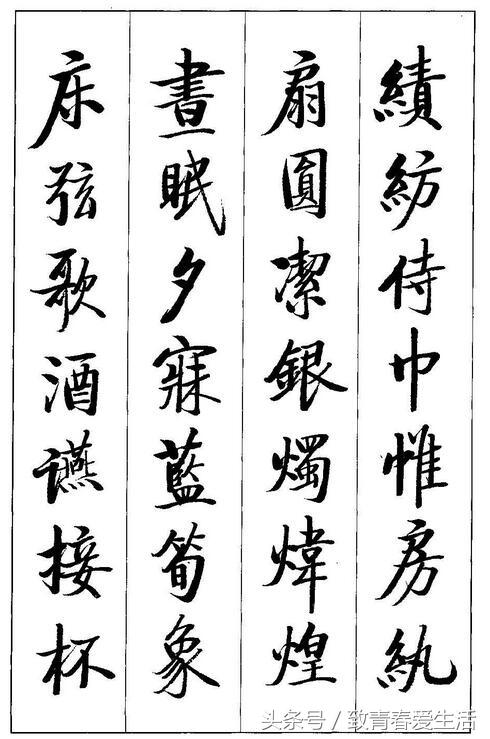 績紡侍巾帷房紈
扇圓潔銀燭煒煌
晝眠夕寐藍筍象
床弦歌酒讌接杯
头条号／致青春爱生活